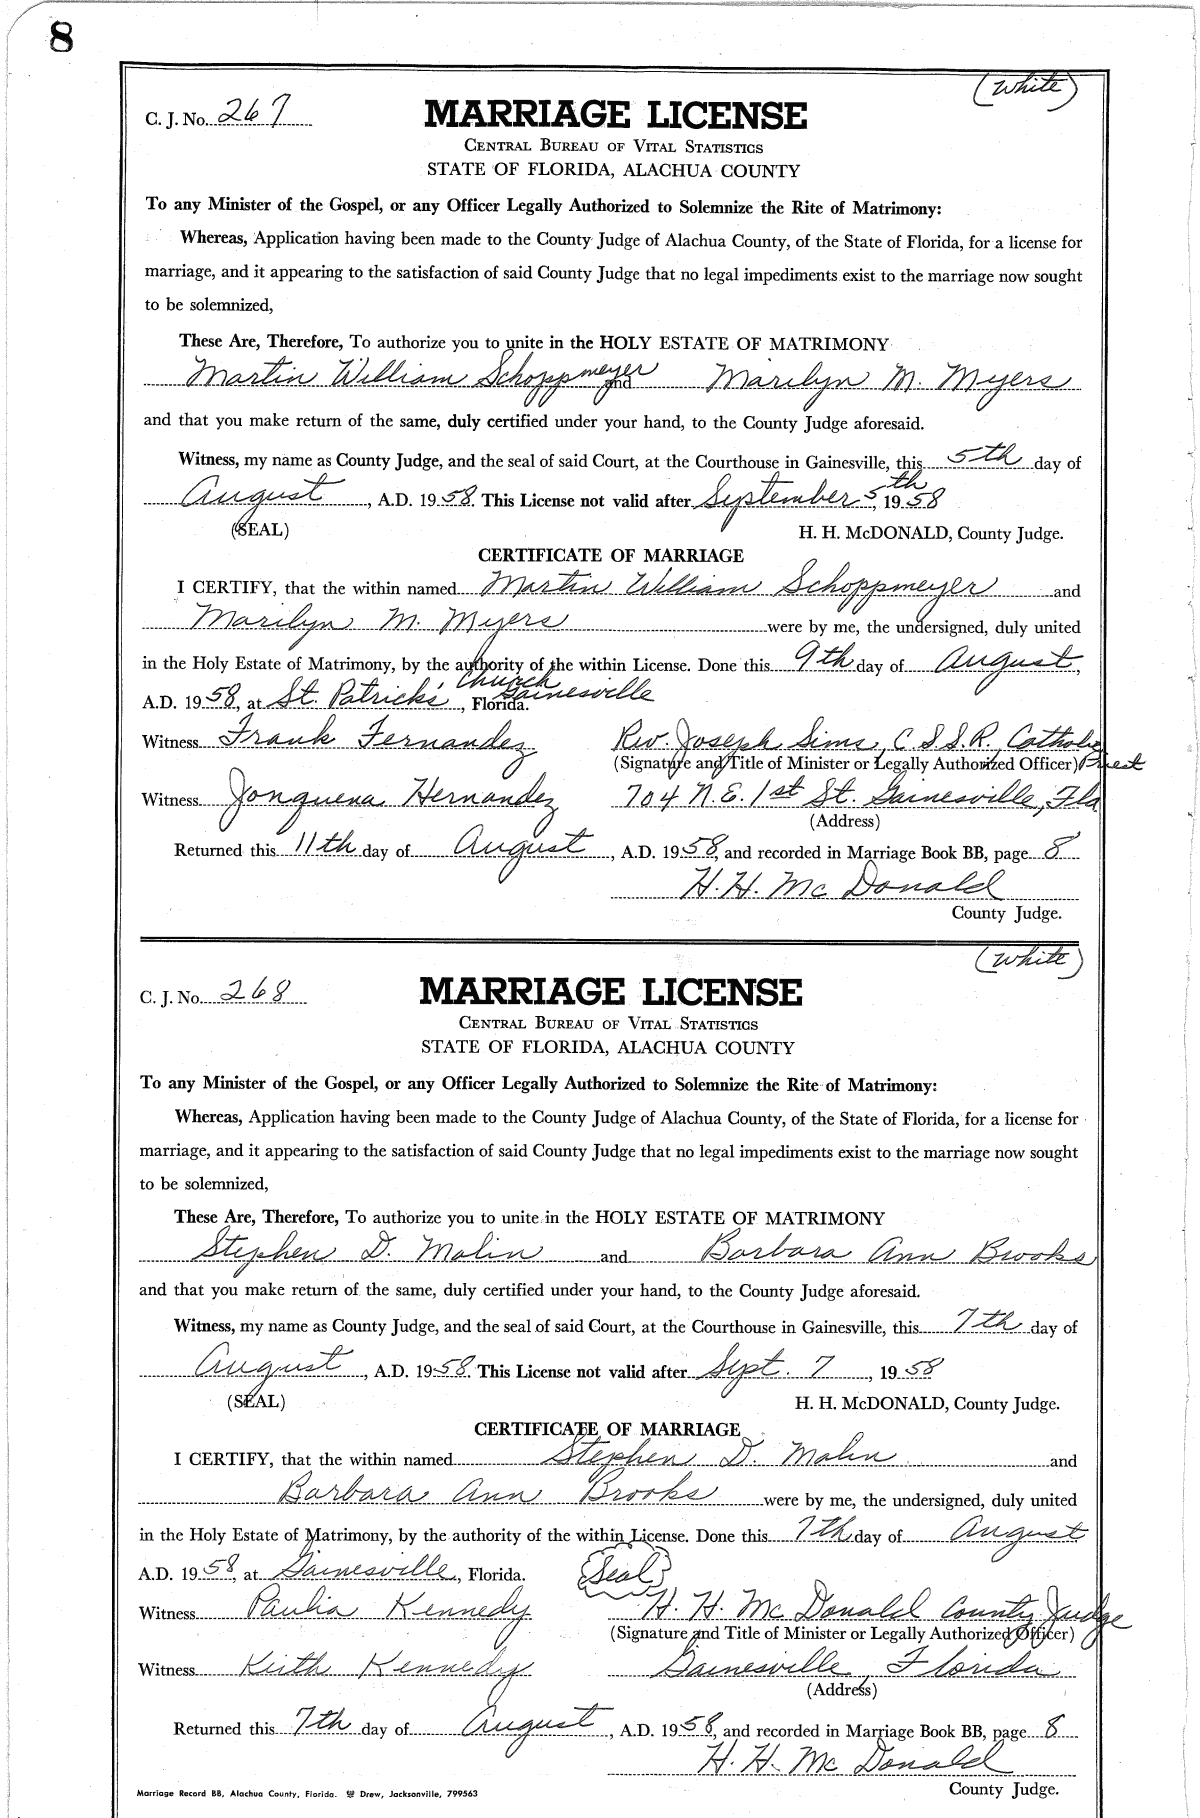 8
(White)
C. J. No. 267
MARRIAGE LICENSE
CENTRAL BUREAU OF VITAL STATISTICS
STATE OF FLORIDA, ALACHUA COUNTY
To any Minister of the Gospel, or any Officer Legally Authorized to Solemnize the Rite of Matrimony:
Whereas, Application having been made to the County Judge of Alachua County, of the State of Florida, for a license for
marriage, and it appearing to the satisfaction of said County Judge that no legal impediments exist to the marriage now sought
to be solemnized,
These Are, Therefore, To authorize you to unite in the HOLY ESTATE OF MATRIMONY
Martin William Schoppmeyer and Marilyn M. Myers
and that you make return of the same, duly certified under your hand, to the County Judge aforesaid.
Witness, my name as County Judge, and the seal of said Court, at the Courthouse in Gainesville, this 5th day of
August, A.D. 1958. This License not valid after September 5th, 1958
(SEAL) H. H. McDONALD, County Judge.
CERTIFICATE OF MARRIAGE
I CERTIFY, that the within named Martin William Schoppmeyer and
Marilyn M. Myers were by me, the undersigned, duly united
in the Holy Estate of Matrimony, by the authority of the within License. Done this 9th day of August,
A.D. 1958, at St. Patrick's Church Gainesville, Florida.
Witness Frank Fernandez Rev. Joseph Sims, C S S R, Catholic Priest
(Signature and Title of Minister or Legally Authorized Officer)
Witness Jonquena Hernandez 704 N.E. 1st St. Gainesville, Fla
(Address)
Returned this 11th day of August, A.D. 1958, and recorded in Marriage Book BB, page 8
H. H. McDonald
County Judge.
(White)
C. J. No. 268
MARRIAGE LICENSE
CENTRAL BUREAU OF VITAL STATISTICS
STATE OF FLORIDA, ALACHUA COUNTY
To any Minister of the Gospel, or any Officer Legally Authorized to Solemnize the Rite of Matrimony:
Whereas, Application having been made to the County Judge of Alachua County, of the State of Florida, for a license for
marriage, and it appearing to the satisfaction of said County Judge that no legal impediments exist to the marriage now sought
to be solemnized,
These Are, Therefore, To authorize you to unite in the HOLY ESTATE OF MATRIMONY
Stephen D. Malin and Barbara Ann Brooks
and that you make return of the same, duly certified under your hand, to the County Judge aforesaid.
Witness, my name as County Judge, and the seal of said Court, at the Courthouse in Gainesville, this 7th day of
August, A.D. 1958. This License not valid after Sept. 7, 1958
(SEAL) H. H. McDONALD, County Judge.
CERTIFICATE OF MARRIAGE
I CERTIFY, that the within named Stephen D. Malin and
Barbara Ann Brooks were by me, the undersigned, duly united
in the Holy Estate of Matrimony, by the authority of the within License. Done this 7th day of August
A.D. 1958, at Gainesville, Florida. Seal
Witness Paulia Kennedy H. H. McDonald County Judge
(Signature and Title of Minister or Legally Authorized Officer)
Witness Keith Kennedy Gainesville, Florida
(Address)
Returned this 7th day of August, A.D. 1958, and recorded in Marriage Book BB, page 8
H. H. McDonald
County Judge.
Marriage Record BB, Alachua County, Florida. Drew, Jacksonville, 799563